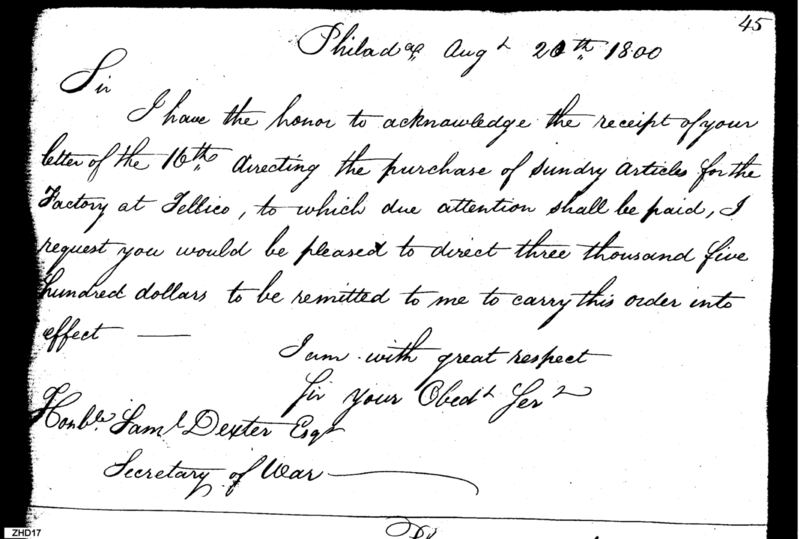 45
Philada. Augt 20th 1800
Sir
I have the honor to acknowledge the receipt of your
letter of the 16th directing the purchase of sundry articles for the
Factory at Tellico, to which due attention shall be paid, I
request you would be pleased to direct three thousand five
hundred dollars to be remitted to me to carry this order into
effect —
I am with great respect
Sir your Obedt Sert
Honble. Saml Dexter Esqr
Secretary of War
ZHD17